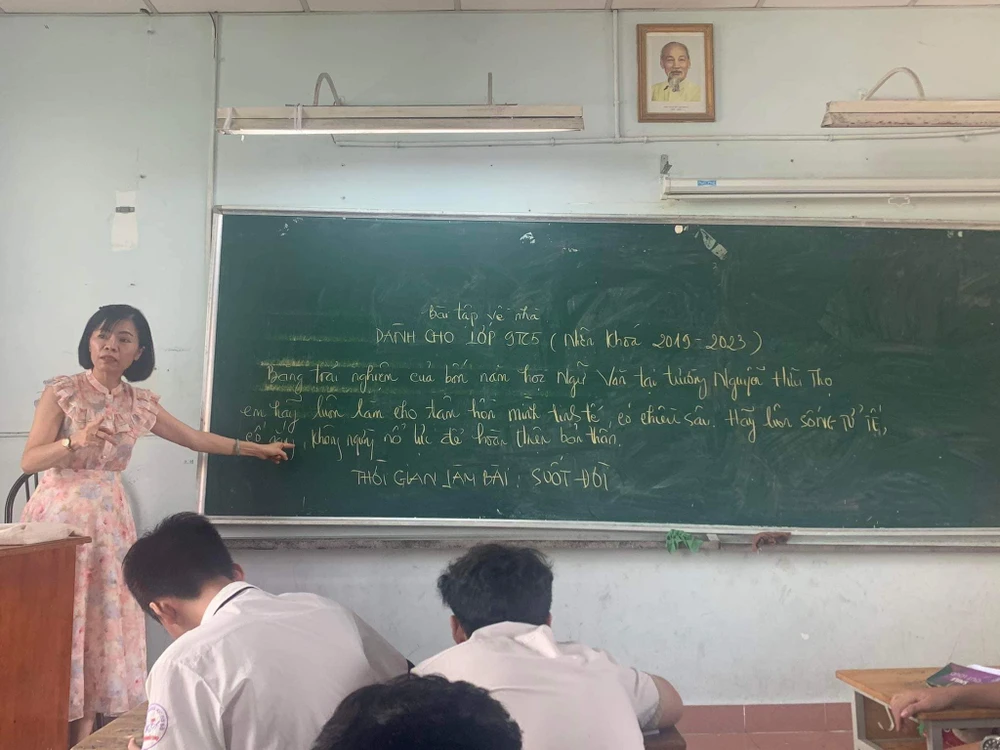 Bài tập về nhà
DÀNH CHO LỚP 9TC5 (Niên Khoá 2019-2023)
Bằng trải nghiệm của bốn năm học Ngữ Văn tại trường Nguyễn Hữu Thọ
em hãy luôn làm cho tâm hồn mình tinh tế, có chiều sâu. Hãy luôn SỐNG TỬ TẾ,
cố gắng, không ngừng nỗ lực để hoàn thiện bản thân.
THỜI GIAN LÀM BÀI: SUỐT ĐỜI